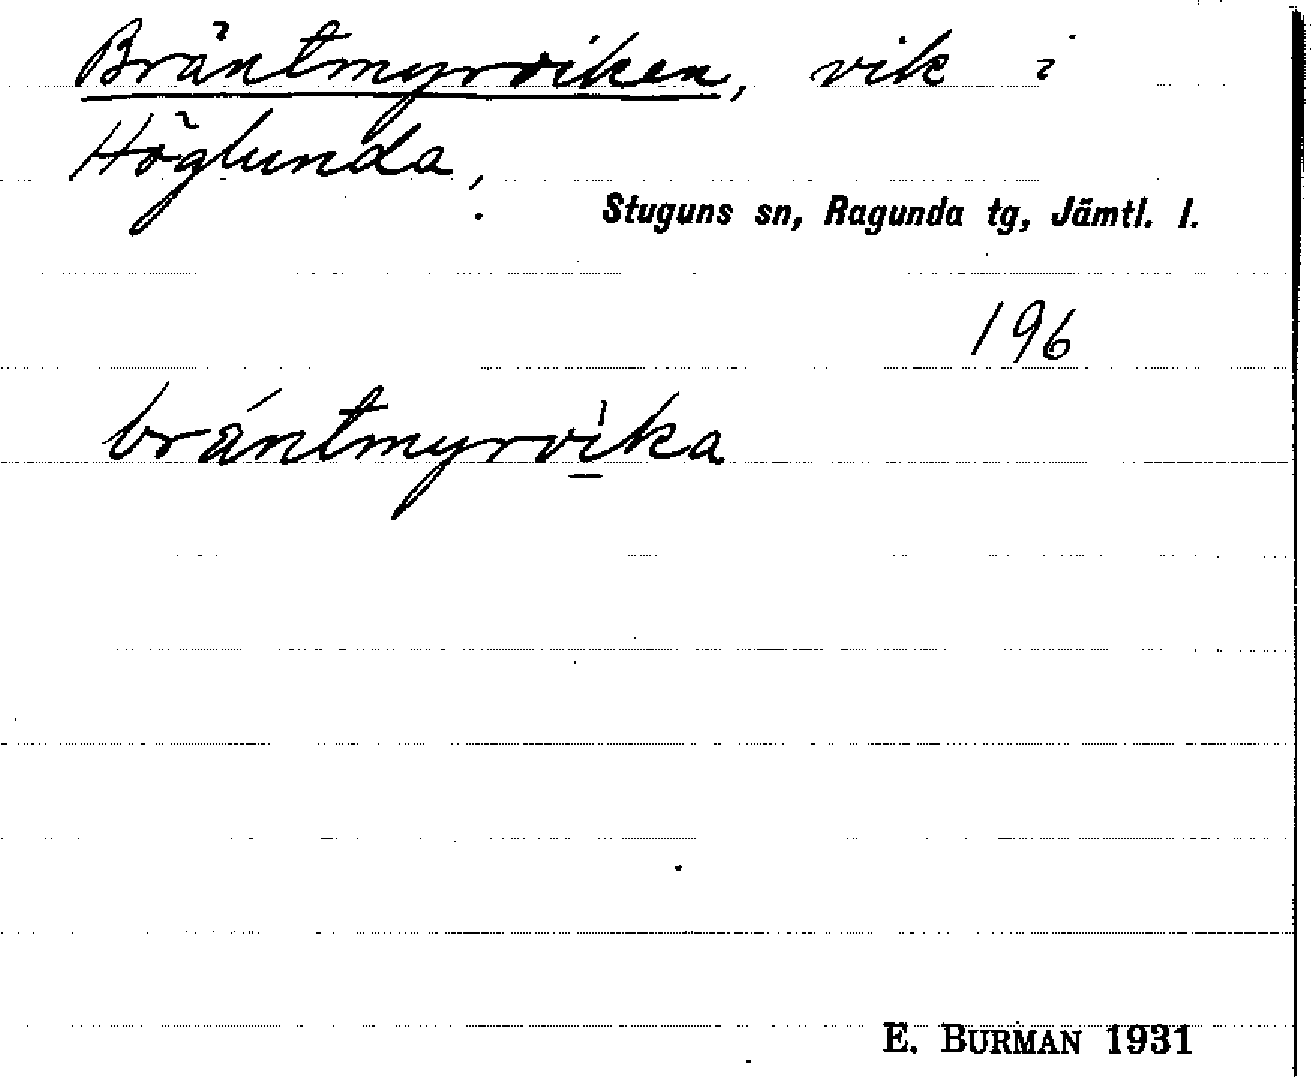 Bräntmyrviken, vik i
Höglunda,
Stuguns sn, Ragunda tg, Jämtl. l.
196
brántmyrvìka
E. BURMAN 1931